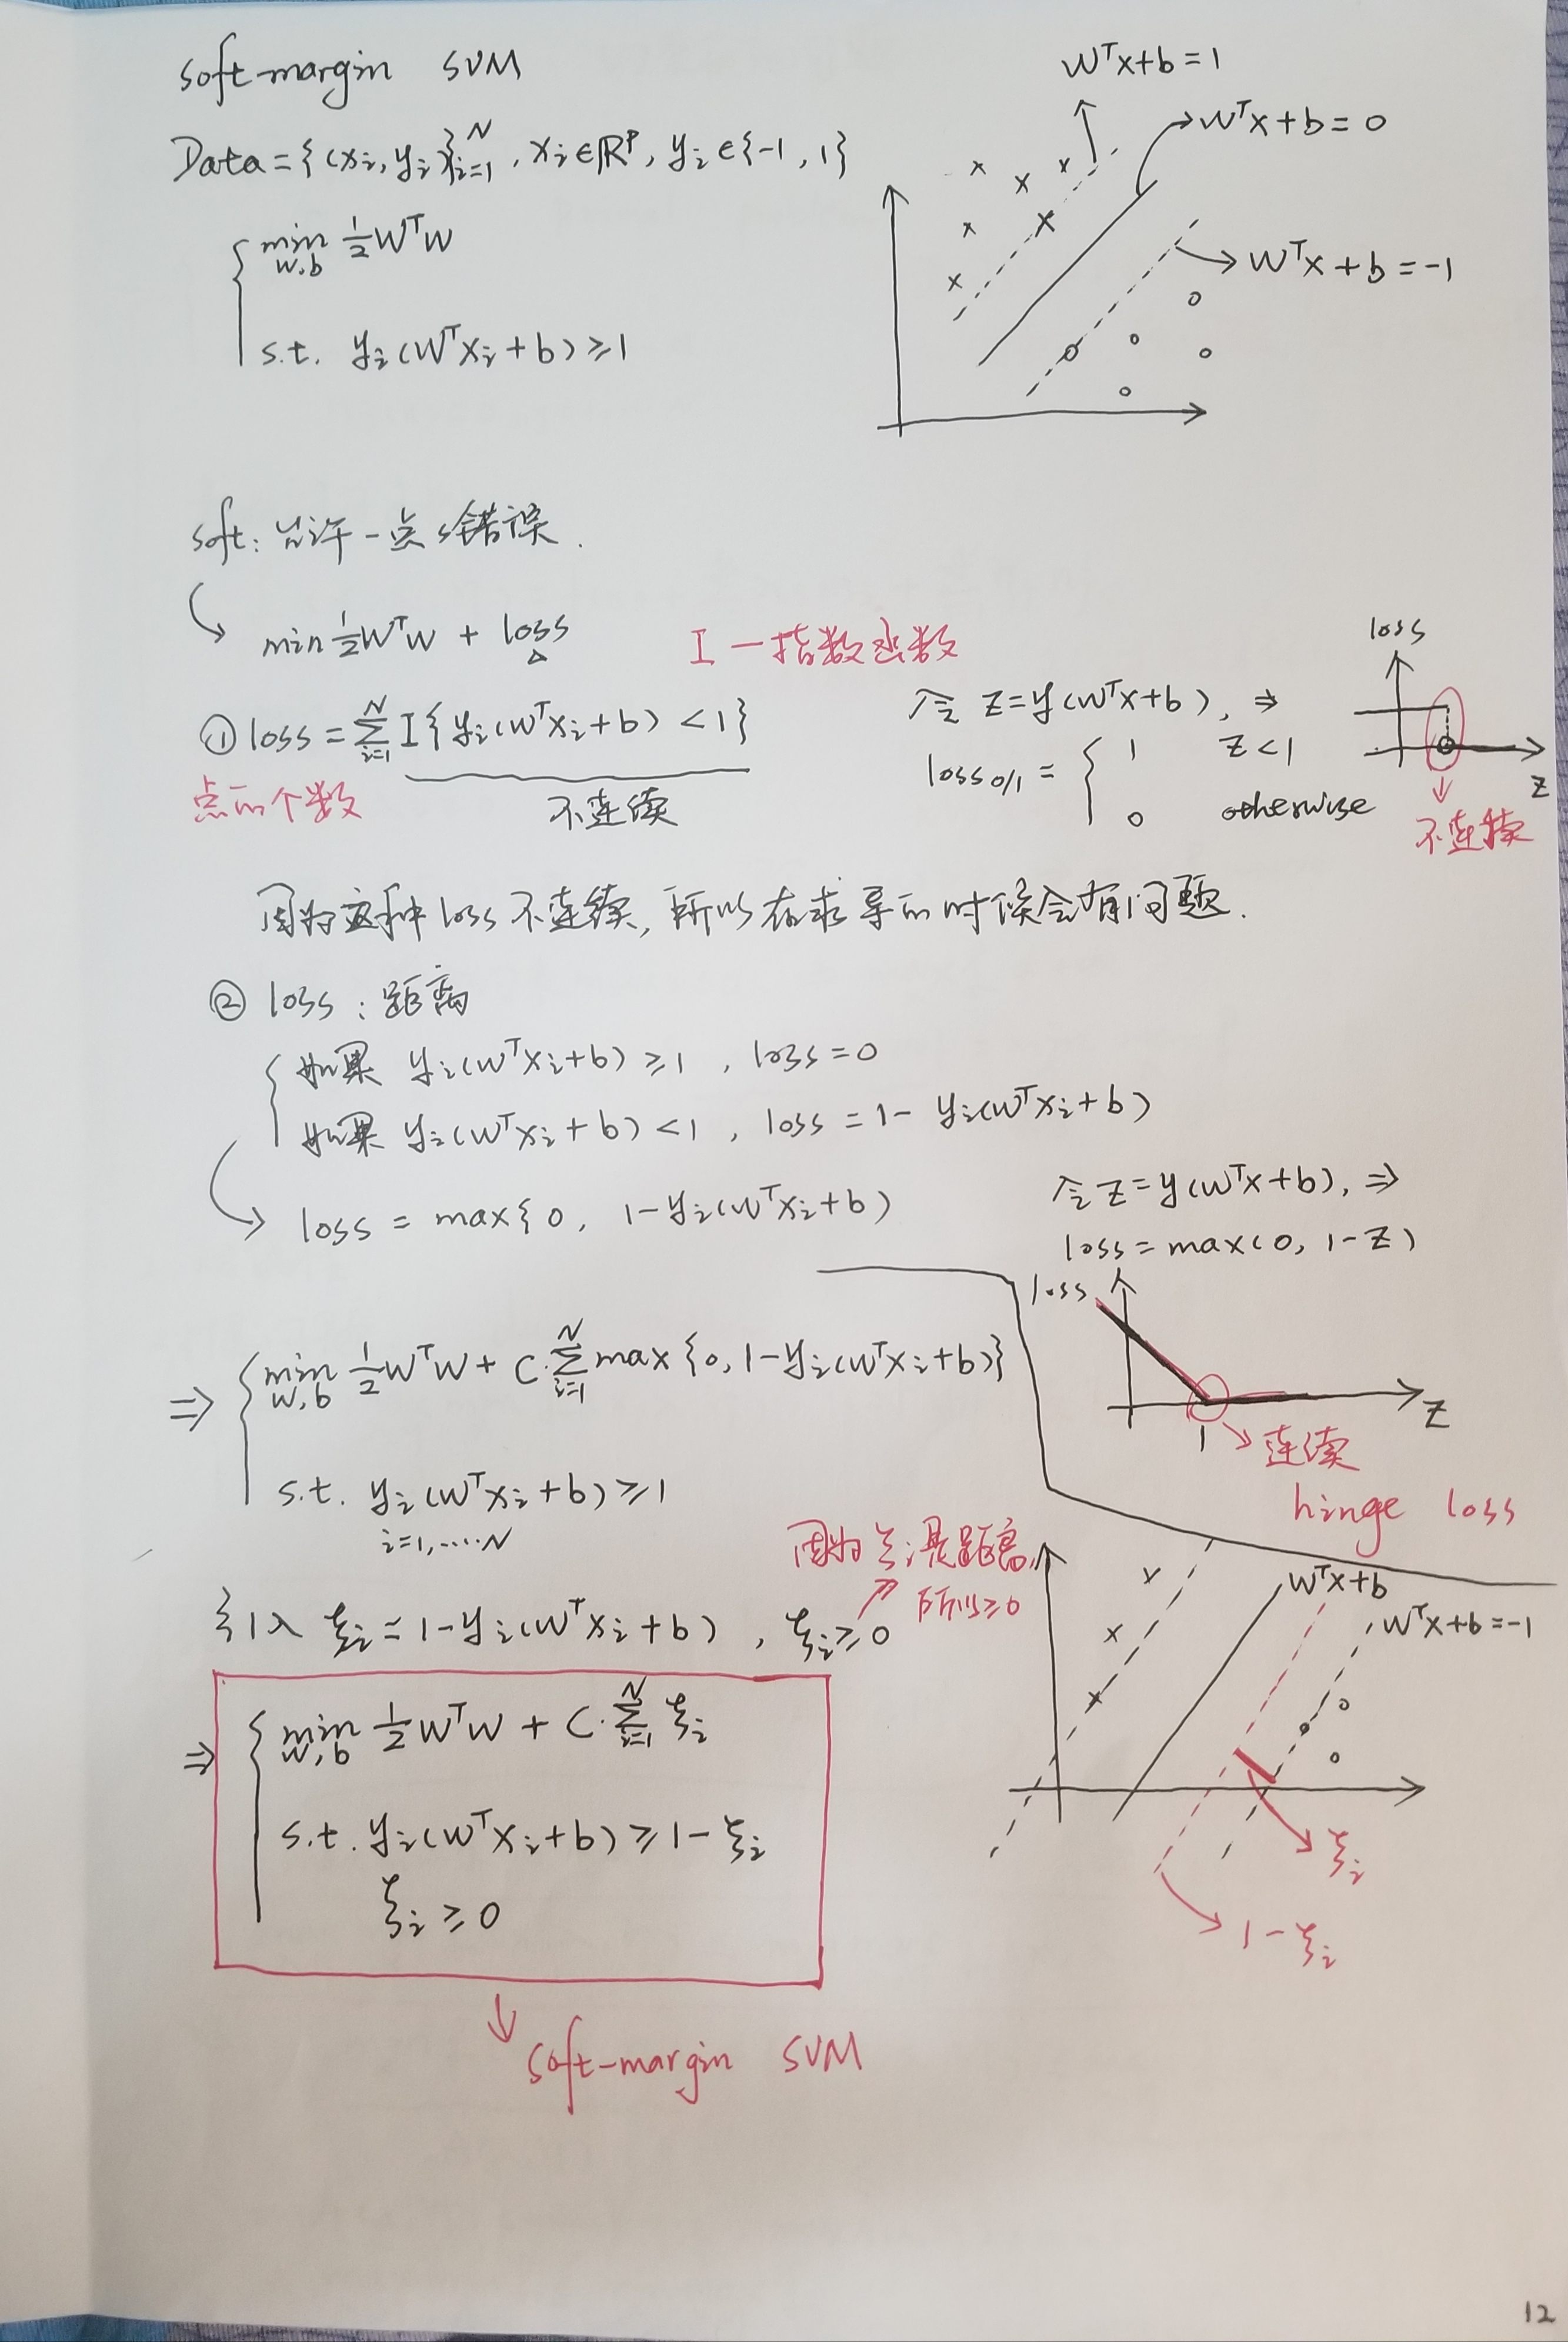 soft-margin SVM
Data={(xi, yi)}_{i=1}^N, xi∈ℝ^p, yi∈{-1, 1}
min_{w,b} 1/2 W^T W
s.t. yi(W^T xi+b)≥1
W^T x+b=1
W^T x+b=0
W^T x+b=-1
soft: 允许一点点错误.
min 1/2 W^T W + loss
I — 指数函数
① loss = ∑_{i=1}^N I{yi(W^T xi+b)<1}
点的个数
不连续
令 Z=y(W^T x+b), ⇒
loss_{0/1} = { 1 Z<1
0 otherwise
loss
Z
不连续
因为这种loss不连续, 所以在求导的时候会有问题.
② loss: 距离
如果 yi(W^T xi+b)≥1, loss=0
如果 yi(W^T xi+b)<1, loss=1- yi(W^T xi+b)
loss = max{0, 1-yi(W^T xi+b)
令 Z=y(W^T x+b), ⇒
loss=max(0, 1-Z)
loss
Z
1
连续
hinge loss
⇒ min_{w,b} 1/2 W^T W + C·∑_{i=1}^N max{0, 1-yi(W^T xi+b)}
s.t. yi(W^T xi+b)≥1
i=1,……N
引入 ξi=1-yi(W^T xi+b), ξi≥0
因为ξi是距离,
所以≥0
⇒ min_{w,b} 1/2 W^T W + C·∑_{i=1}^N ξi
s.t. yi(W^T xi+b)≥1-ξi
ξi≥0
soft-margin SVM
W^T x+b
W^T x+b=-1
ξi
1-ξi
12